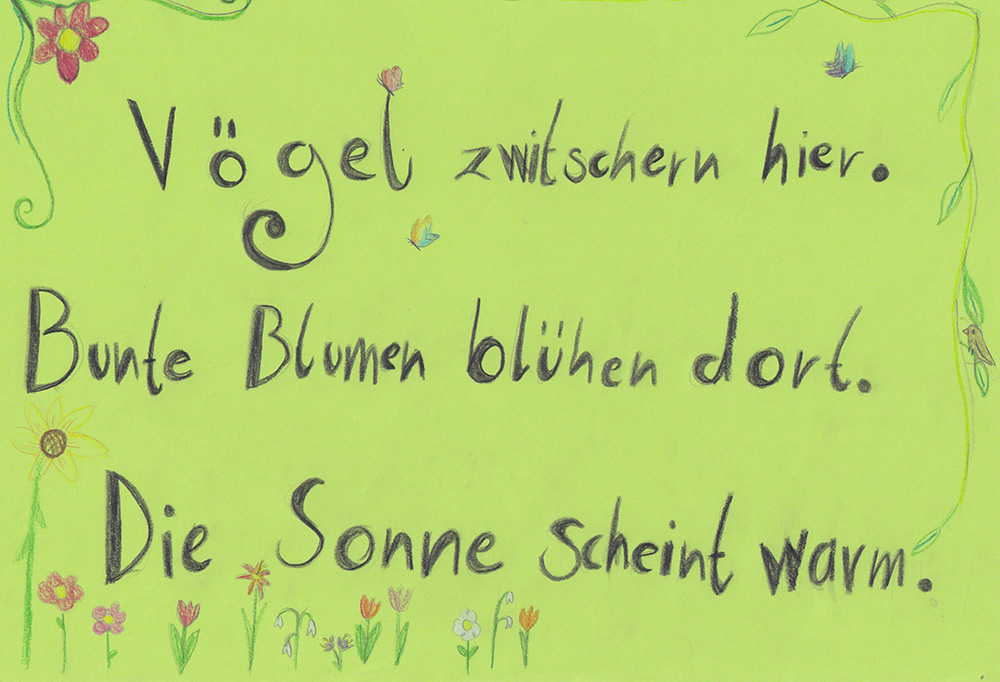 Vögel zwitschern hier.
Bunte Blumen blühen dort.
Die Sonne scheint warm.